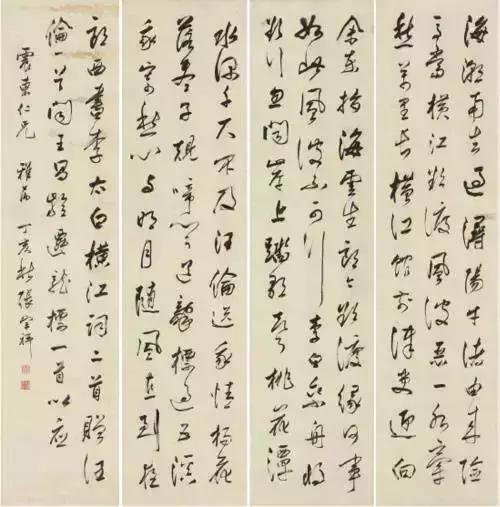 海潮南去過潯陽牛渚由來險
馬當橫江欲渡風波惡一水牽
愁萬里長橫江館前津吏迎向
余東指海雲生郎今欲渡緣何事
如此風波不可行李白乘舟將
欲行忽聞岸上踏歌聲桃花潭
水深千尺不及汪倫送我情楊花
落盡子規啼聞道龍標過五溪
我寄愁心與明月隨風直到夜
郎西書李太白橫江詞二首贈汪
倫一首聞王昌齡遷龍標一首以應
震東仁兄雅屬丁亥秋張宗祥